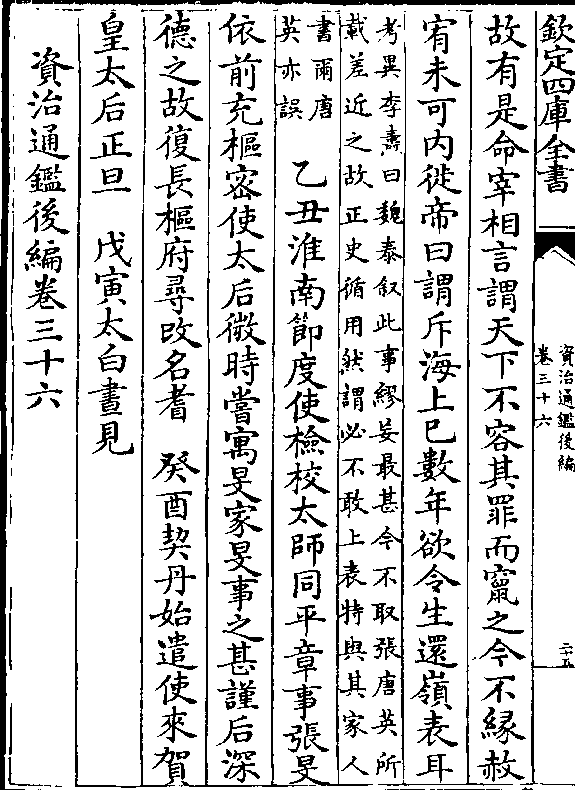 欽定四庫全書
資治通鑑後編
卷三十六
二十五
故有是命宰相言謂天下不容其罪而竄之今不緣赦
宥未可內徙帝曰謂斥海上已數年欲令生還嶺表耳
考異李燾曰魏泰叙此事繆妄最甚今不取張唐英所
載差近之故正史循用然謂必不敢上表特與其家人
書爾唐
英亦誤
乙丑淮南節度使檢校太師同平章事張旻
依前充樞密使太后微時嘗寓旻家旻事之甚謹后深
德之故復長樞府尋改名耆　癸酉契丹始遣使來賀
皇太后正旦　戊寅太白晝見
資治通鑑後編卷三十六